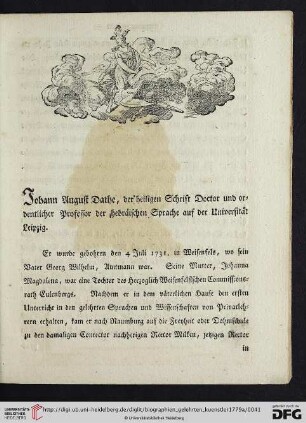 Johann August Dathe, der heiligen Schrift Doctor und or-
dentlicher Professor der hebräischen Sprache auf der Universität
Leipzig.
Er wurde gebohren den 4 Juli 1731, in Weisenfels, wo sein
Vater Georg Wilhelm, Amtmann war. Seine Mutter, Johanna
Magdalena, war eine Tochter des Herzoglich Weisenfelsischen Commissions-
rath Eulenbergs. Nachdem er in dem väterlichen Hause den ersten
Unterricht in den gelehrten Sprachen und Wissenschaften von Privatleh-
rern erhalten, kam er nach Naumburg auf die Freiheit oder Dohmschule
zu den damaligen Conrector nachherigen Rector Müllen, jetzigen Rector
in
UNIVERSITÄTS-
BIBLIOTHEK
HEIDELBERG
http://digi.ub.uni-heidelberg.de/diglit/biographien_gelehrten_kuenstler1779a/0041
© Universitätsbibliothek Heidelberg